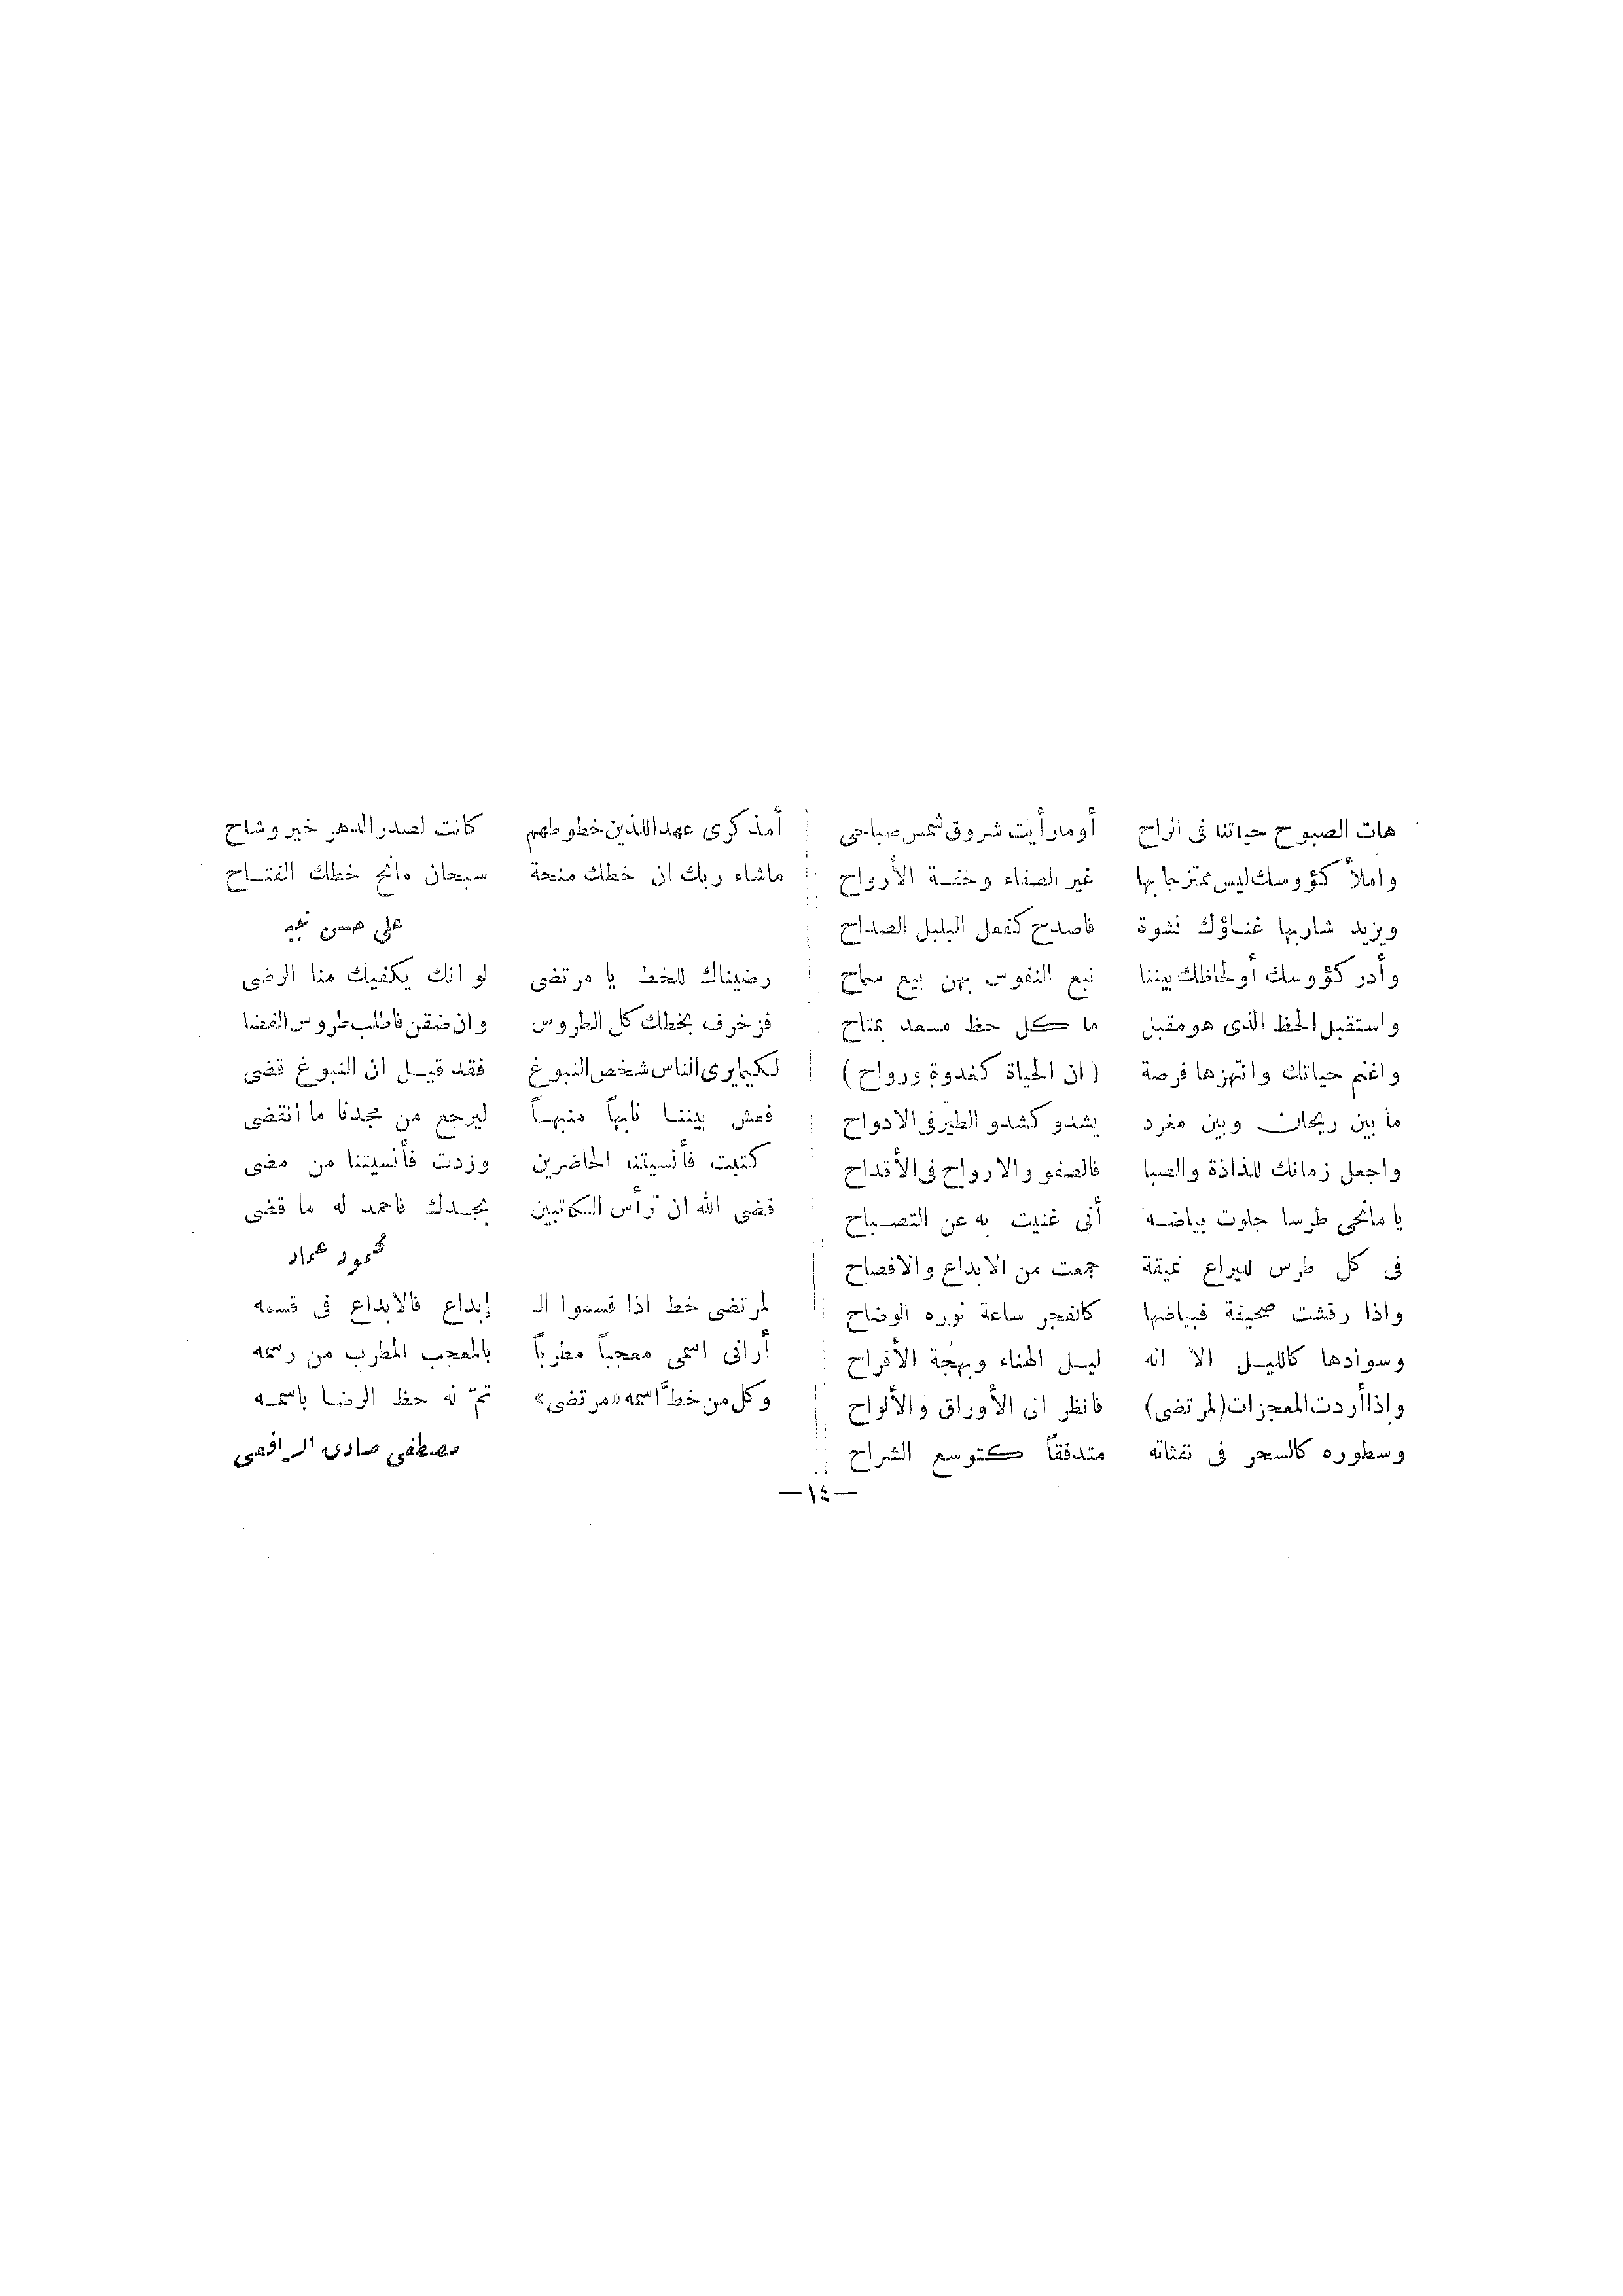 هات الصبوح حياتنا فى الراح أو ما رأيت شروق شمس صباحى
واملأ كؤوسك ليس ممتزجا بها غير الصفاء وخفـة الأرواح
ويزيد شاربها غنـاؤك نشوة فاصدح كفعل البلبل الصداح
وأدر كؤوسك أو لحاظك بيننا نبع النفوس بهن بيع سماح
واستقبل الحظ الذى هو مقبل ما كل حظ مسعد بمتاح
واغنم حياتك وانتهزها فرصة (ان الحياة كغدوة ورواح)
ما بين ريحان وبين مغرد يشدو كشدو الطير فى الادواح
واجعل زمانك للذاذة والصبا فالصفو والارواح فى الأقداح
يا مانحى طرسا جلوت بياضـه أنى غنيت به عن التصـباح
فى كل طرس لليراع نميقة جمعت من الابداع والافصاح
واذا رقشت صحيفة فبياضها كالفجر ساعة نوره الوضاح
وسوادها كالليـل الا انه ليـل الهناء وبهجة الأفراح
وإذا أردت المعجزات (لمرتضى) فانظر الى الأوراق والألواح
وسطوره كالسحر فى نفثاته متدفقاً كتوسع الشراح
أمذكرى عهد اللذين خطوطهم كانت لصدر الدهر خير وشاح
ماشاء ربك ان خطك منحة سبحان مانح خطك الفتـاح
على حسن نجيب
رضيناك للخط يا مرتضى لو انك يكفيك منا الرضى
فزخرف بخطك كل الطروس وان ضقن فاطلب طروس الفضا
لكيما يرى الناس شخص النبوغ فقد قيـل ان النبوغ قضى
فعش بيننـا نابهاً منبهـاً ليرجع من مجدنا ما انقضى
كتبت فأنسيتنا الحاضرين وزدت فأنسيتنا من مضى
قضى الله ان ترأس الـكاتبين بجـدك فاحمد له ما قضى
محمود عماد
لمرتضى خط اذا قسموا الـ إبداع فالابداع فى قسمه
أرانى اسمى معجباً مطرباً بالمعجب المطرب من رسمه
وكل من خطَّ اسمه «مرتضى» تمّ له حظ الرضـا باسمـه
مصطفى صادق الرافعى
—١٤—